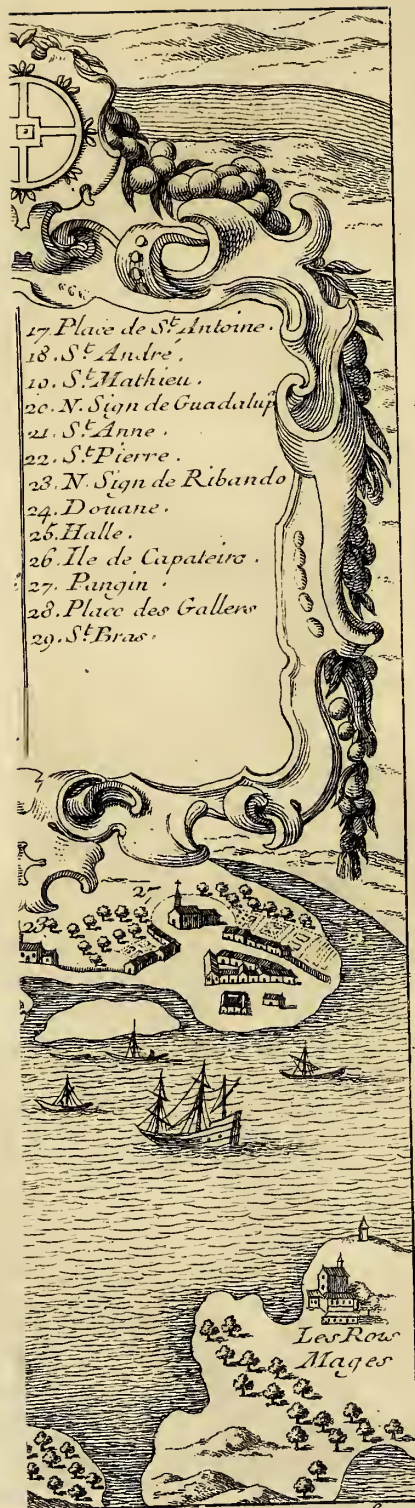 17. Place de St. Antoine.
18. St. André.
19. St. Mathieu.
20. N. Sign de Guadalup
21. St. Anne.
22. St. Pierre.
23. N. Sign de Ribando
24. Douane.
25. Halle.
26. Ile de Capateiro.
27. Pangin.
28. Place des Gallers
29. St. Bras.
27
23
Les Rois
Mages